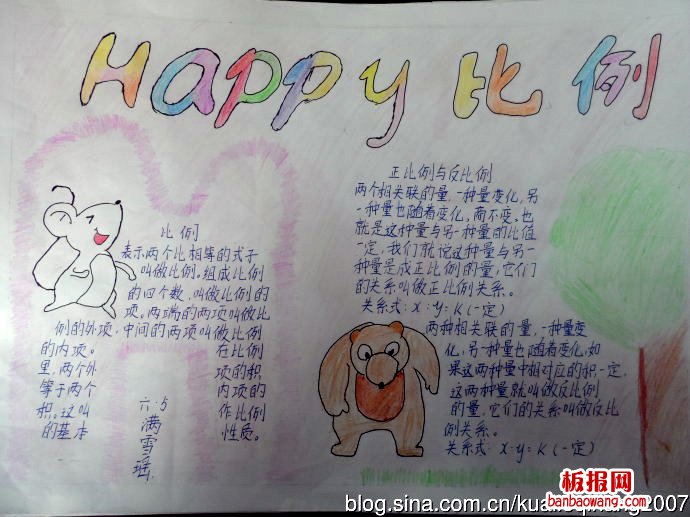 Happy 比例
比例
表示两个比相等的式子
叫做比例。组成比例
的四个数,叫做比例的
项。两端的两项叫做比
例的外项,中间的两项叫做比例
的内项。 在比例
里,两个外 项的积
等于两个 内项的
积。这叫 作比例
的基本 性质。
六:5
满
雪
瑶
正比例与反比例
两个相关联的量,一种量变化,另
一种量也随着变化,商不变。也
就是这种量与另一种量的比值
一定,我们就说这种量与另一
种量是成正比例的量,它们
的关系叫做正比例关系。
关系式:x:y=K(一定)
两种相关联的量,一种量变
化,另一种量也随着变化,如
果这两种量中相对应的积一定,
这两种量就叫做反比例
的量,它们的关系叫做反比
例关系。
关系式:x·y=K(一定)
板报网
banbaowang.com